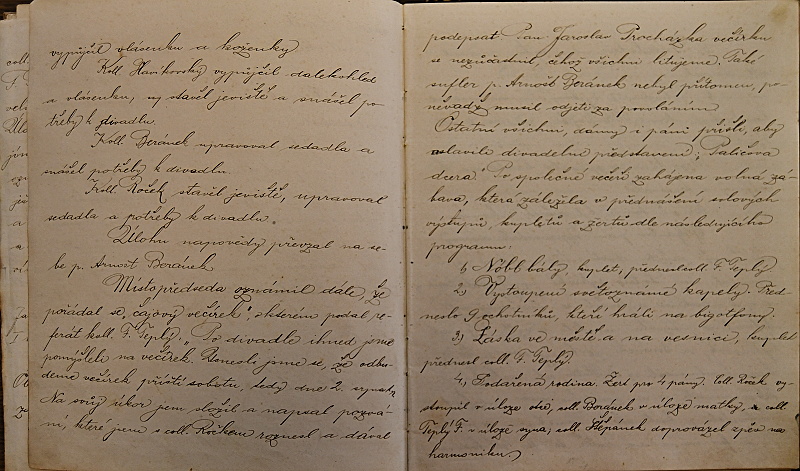 vypůjčil vlásenku a koženky
Koll. Havkovský vypůjčil dalekohled
a vlásenku, vystavěl jeviště a snášel po
třeby k divadlu.
Koll. Beránek upravoval sedadla a
snášel potřeby k divadlu.
Koll. Roček stavěl jeviště, upravoval
sedadla a potřeby k divadlu.
Úlohu napovědy převzal na se-
be p. Arnošt Beránek
Místopředseda oznámil dále, že
pořádal se „čajový večírek", o kterém podal re-
ferát koll. F. Teplý. „Po divadle ihned jsme
pomýšleli na večírek. Usnesli jsme se, že odbu-
deme večírek příští sobotu, tedy dne 2.
Na svůj úkor jsem složil a napsal pozvá-
ní, které jsem s coll. Ročkem roznesl a dával
podepsat. Pan Jaroslav Procházka večírku
se nezúčastnil, čehož všichni litujeme. Také
sufler p. Arnošt Beránek nebyl přítomen, po-
něvadž musil odjeti za povoláním
Ostatní všichni, dámy i páni přišli, aby
oslavili divadelní představení „Paličova
dcera." Po společné večeři zahájena volná zá-
bava, která záležela v přednášení solových
výstupů, kupletů a žertů dle následujícího
programu:
1) Nóbl bály, kuplet, přednesl coll. F. Teplý
2) Vystoupení světoznámé kapely. Před-
neslo 9 ochotníků, kteří hráli na bigotfony.
3) Láska ve městě a na vesnici, kuplet
přednesl coll. F. Teplý.
4) Podařená rodina. Žert pro 4 pány. Coll. Roček vy-
stoupil v úloze otce, coll. Beránek v úloze matky, coll.
Teplý F. v úloze syna; coll. Štěpánek doprovázel zpěv na
harmoniku.